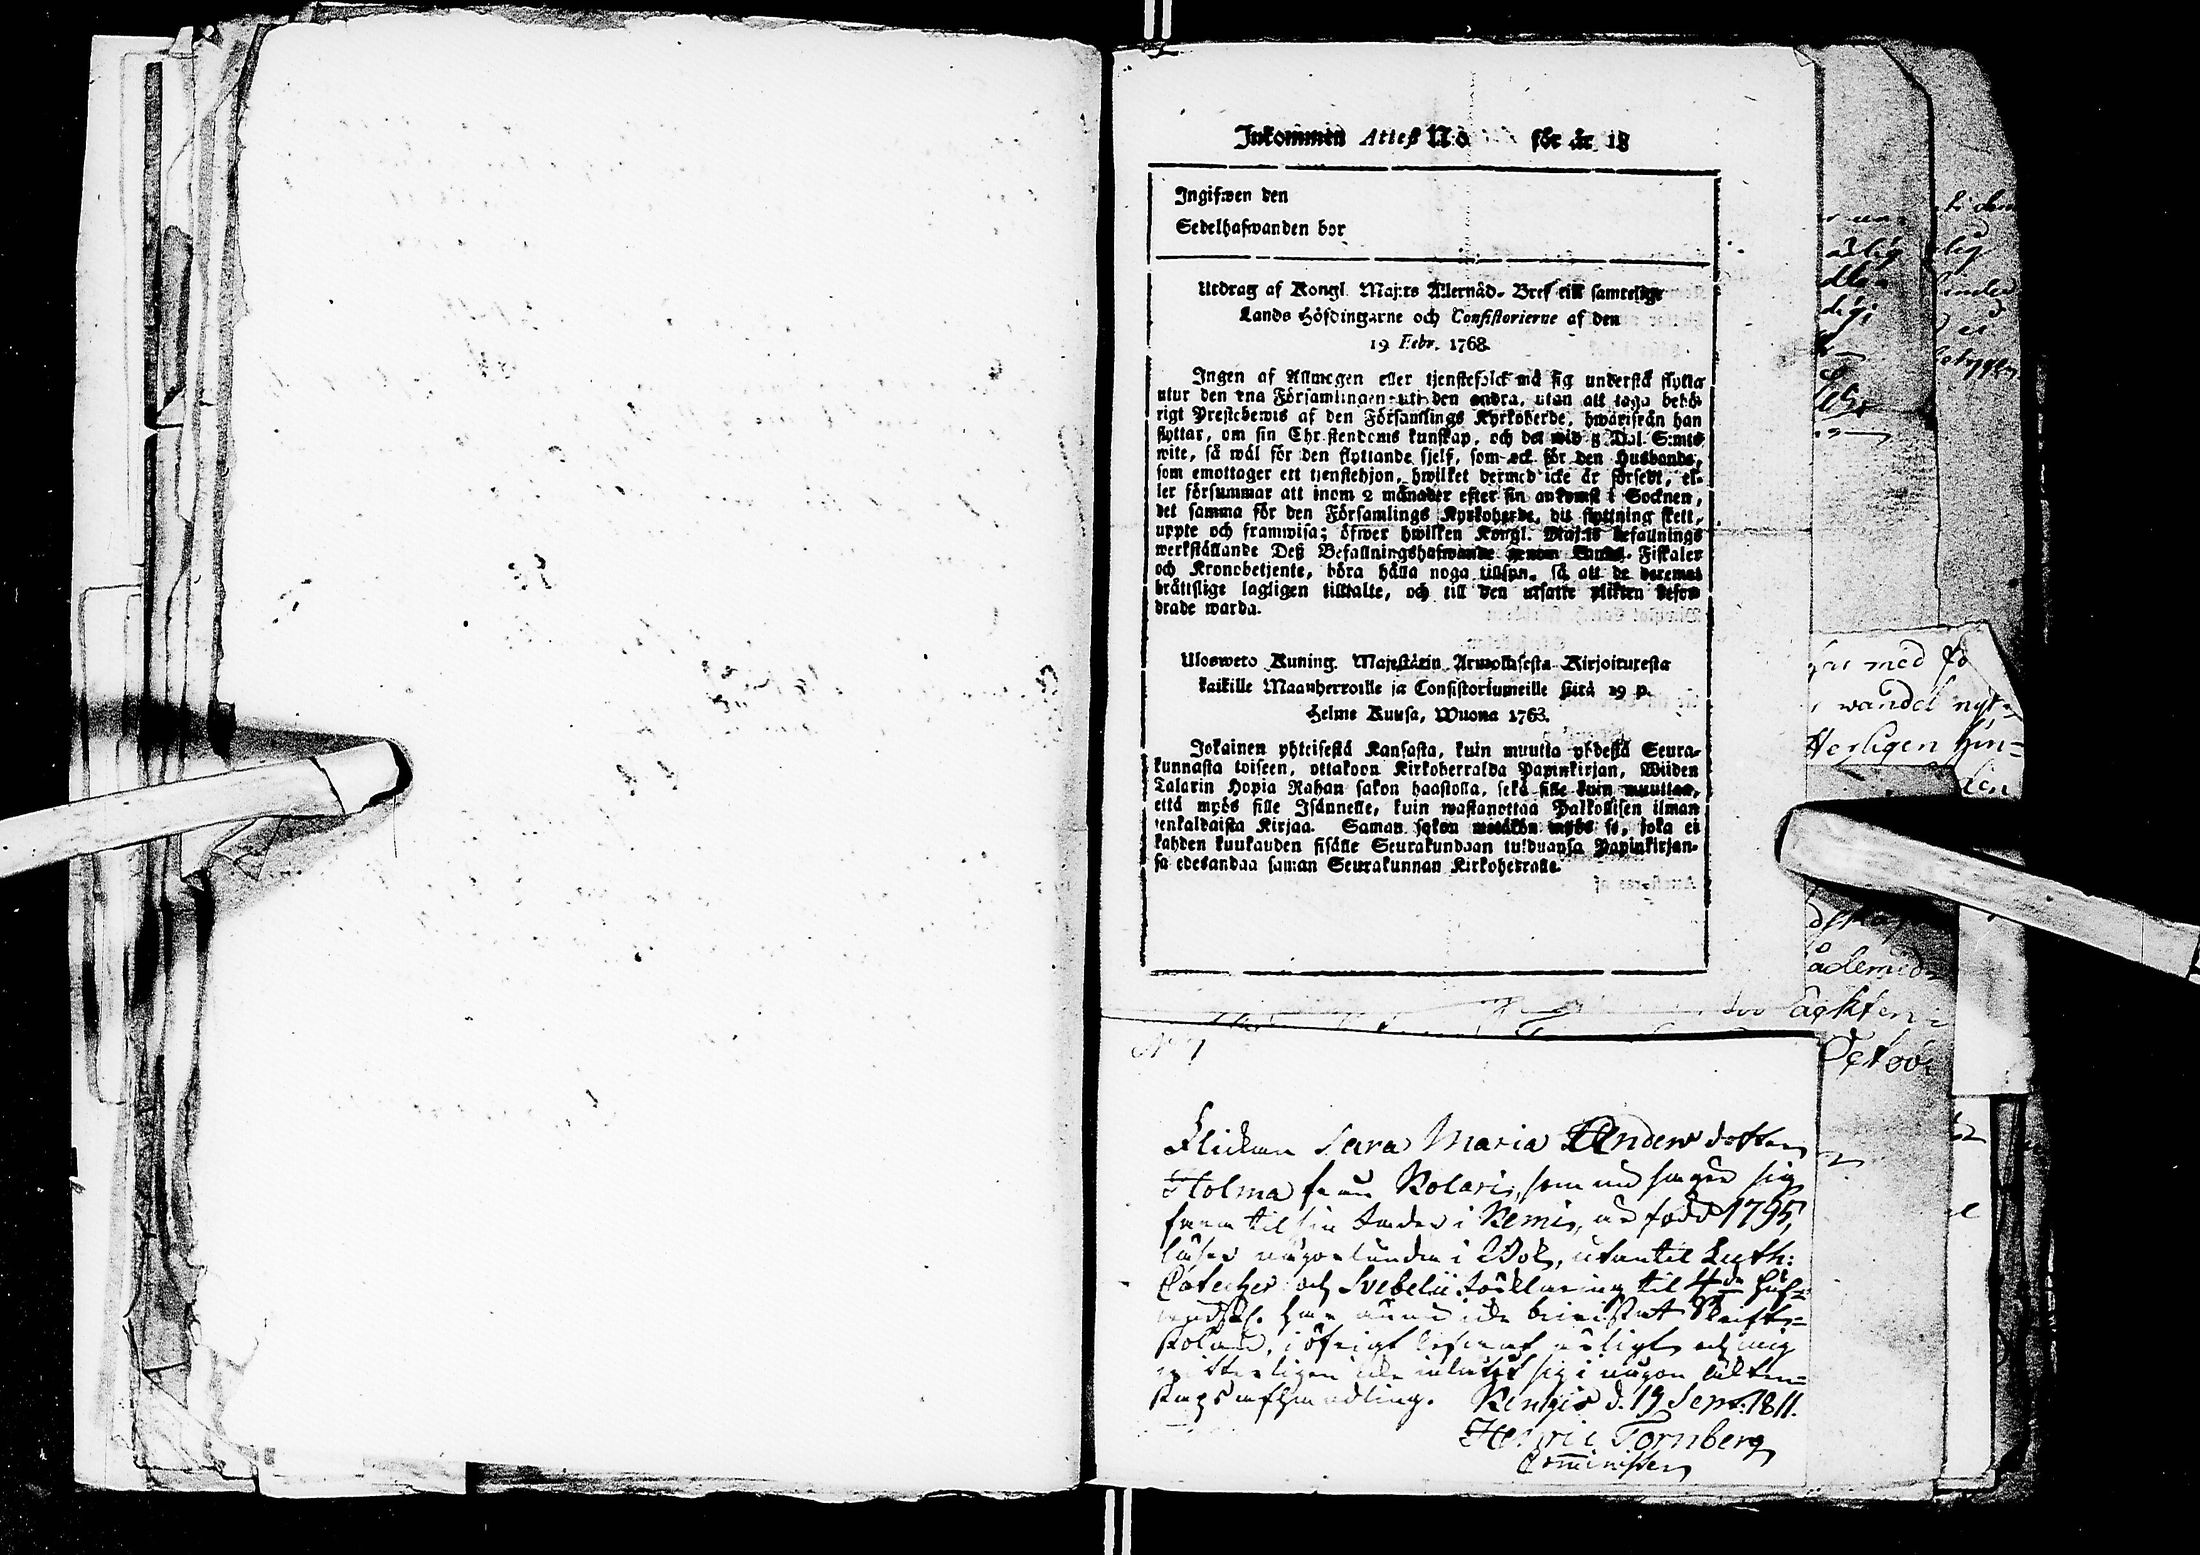 Inkommen Attest N:o för år 18
Ingifwen den
Sedelhafwanden bor
Utdrag af Kongl. Maj:ts Allernåd. Bref till samtelige
Lands Höfdingarne och Consistorierne af den
19 Febr. 1768.
Ingen af Allmogen eller tjenstefolck må sig understå flytta
utur den ena Församlingen uti den andra, utan att taga behö-
rigt Prestebewis af den Församlings Kyrkoherde, hwarifrån han
flyttar, om sin Christendoms kunskap, och det wid 5 Dal. S:mts
wite, så wäl för den flyttande sjelf, som ock för den Husbonde,
som emottager ett tjenstehjon, hwilket dermed icke är försedt, el-
ler försummar att inom 2 månader efter sin ankomst i Socknen,
det samma för den Församlings Kyrkoherde, dit flyttning skett,
uppte och framwisa; öfwer hwilken Kongl. Maj:ts befallnings
werkställande Deß Befallningshafwande genom Lands-Fiskaler
och Kronobetjente, böra hålla noga tillsyn, så att de deremot
brättslige lagligen tilltalte, och till den utsatte plikten befor-
drade warda.
Ulosweto Kuning. Majestätin Armollisesta Kirjoituxesta
kaikille Maanherroille ja Consistoriumeille siitä 19 p.
Helme Kuusa, Wuona 1768.
Jokainen yhteisestä Kansasta, kuin muutta yhdestä Seura-
kunnasta toiseen, ottakoon Kirkoherralda Papinkirjan, Wiiden
Talarin Hopia Rahan sakon haastolla, sekä sille kuin muuttaa,
että myös sille Isännelle, kuin wastanottaa Palkollisen ilman
senkaldaista Kirjaa. Saman sakon wetäkön myös se, joka ei
kahden kuukauden sisälle Seurakundaan tulduansa Papinkirjan-
sa edesandaa saman Seurakunnan Kirkoherralle.
N:o 7
Flickan Sara Maria Anders dotter
Holma från Kolari, som nu begär sig
fram til sin Fader i Kemi, är född 1795,
läser någorlunda i Bok, utantil Luth:
Cateches och Svebelii förklaring til 4de Huf-
vudst. har ännu icke bivistat Skrift-
skolan, i öfrigt lefvat ärligt och mig
vitterligen icke inlåtit sig i någon äkten-
skaps afhandling. Kengis d. 19 Sept. 1811.
Henric Tornberg
Comminister